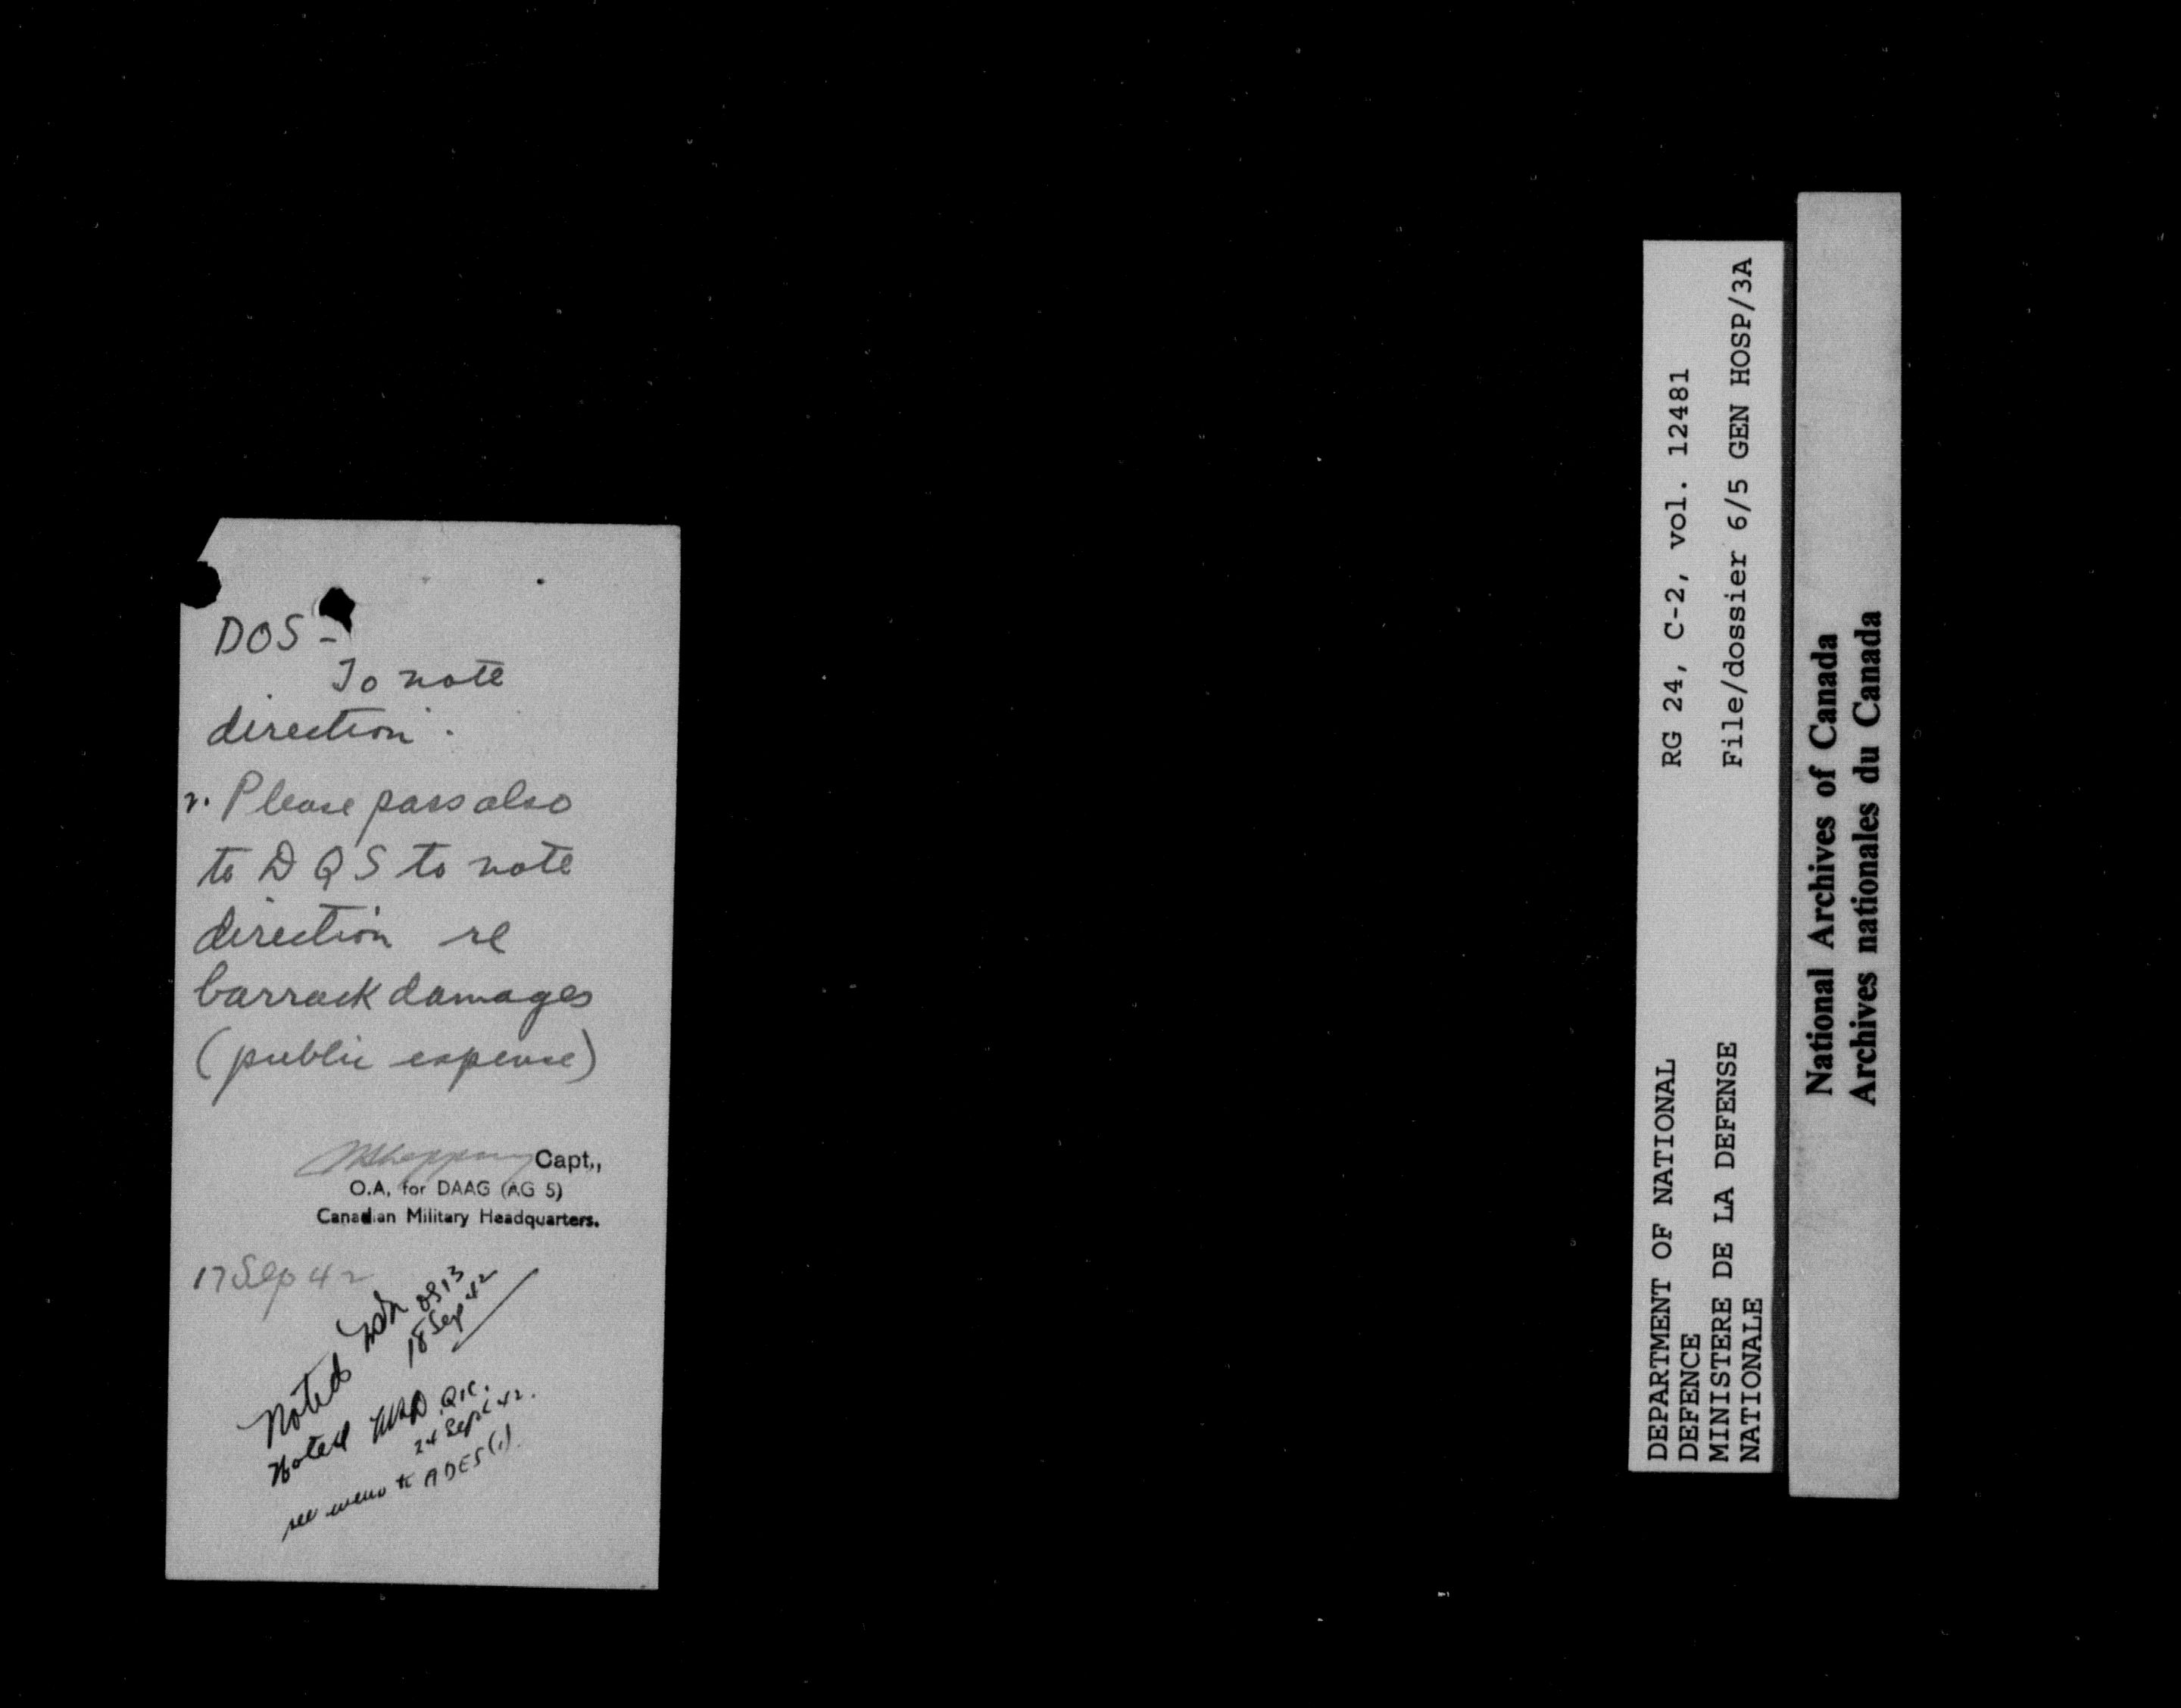 DOS -
To note
direction.
2. Please pass also
to DQS to note
direction re
barrack damages
(public expense)
Capt.,
O.A. for DAAG (AG 5)
Canadian Military Headquarters.
17 Sep 42
Noted
18 Sep 42
Noted
24 Sept 42.
see memo to ADES(1).
RG 24, C-2, vol. 12481
File/dossier 6/5 GEN HOSP/3A
DEPARTMENT OF NATIONAL
DEFENCE
MINISTERE DE LA DEFENSE
NATIONALE
National Archives of Canada
Archives nationales du Canada